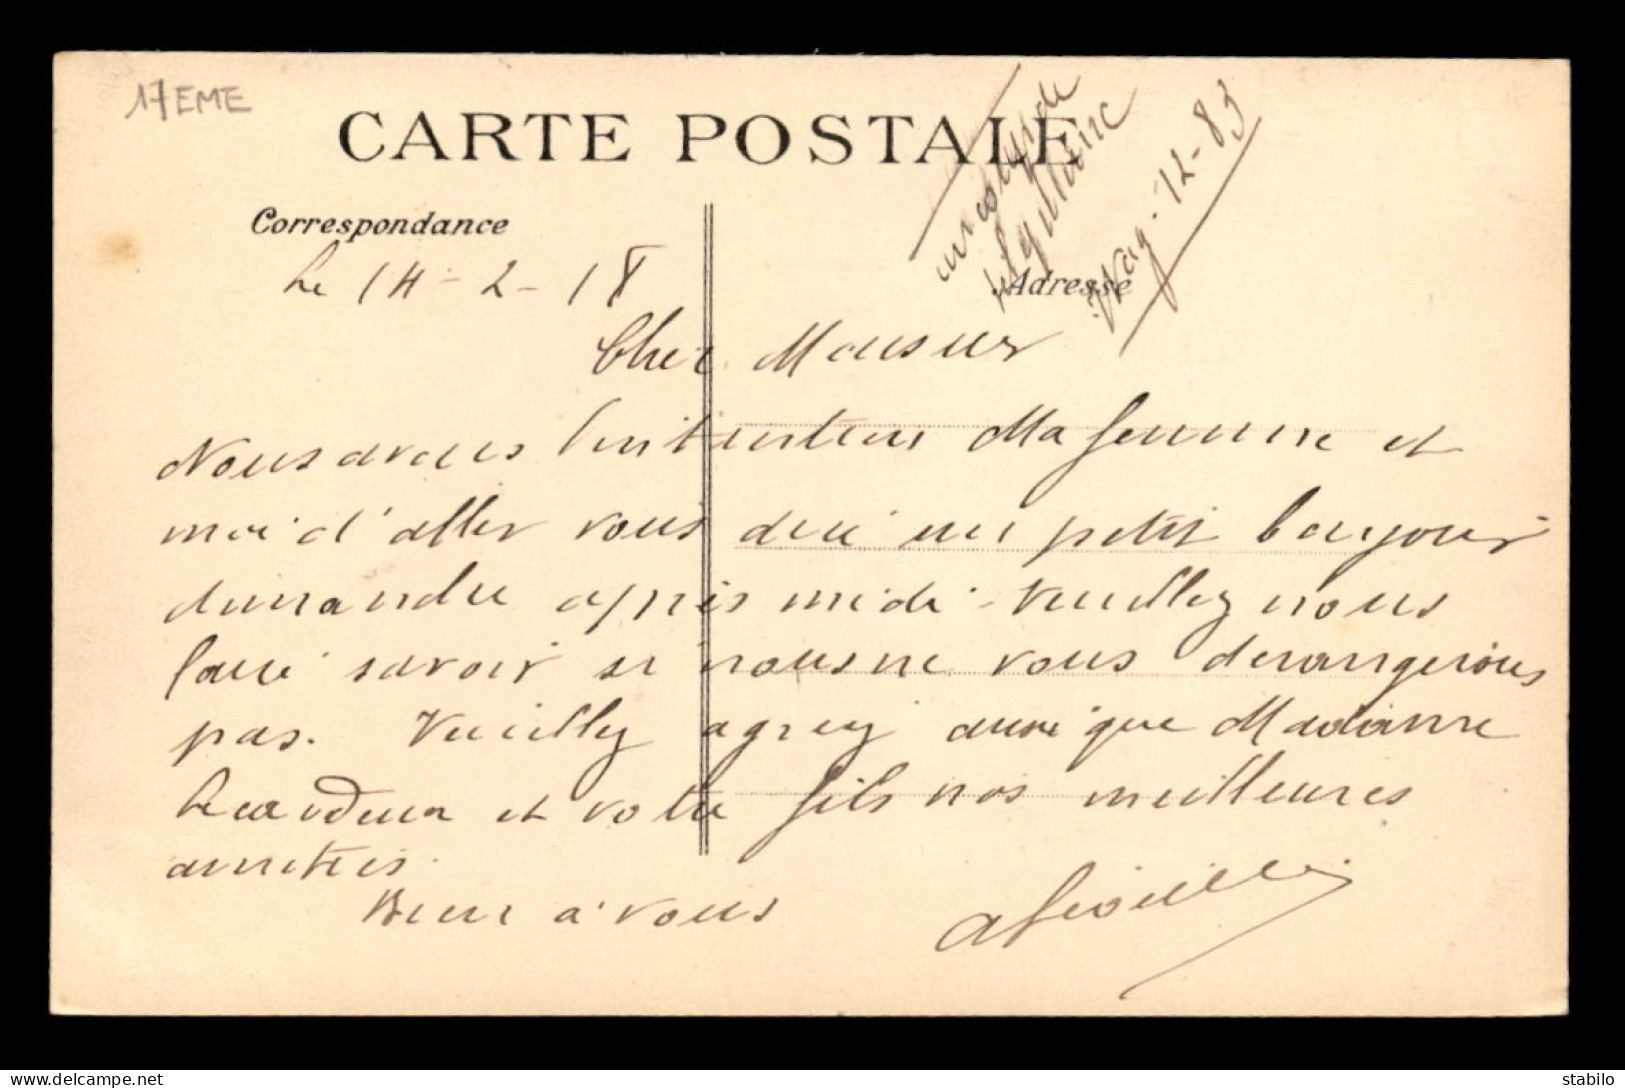 17EME
CARTE POSTALE
Correspondance
Adresse
Wag. 12-83
Le 14-2-18
Cher Monsieur
Nous avons l'intention Ma femme et
moi d'aller vous dire un petit bonjour
dimanche après midi - Veuillez nous
faire savoir si nous ne vous derangerions
pas. Veuillez agreez ainsi que Madame
et votre fils nos meilleures
amities.
Bien à vous
www.delcampe.net
stabilo